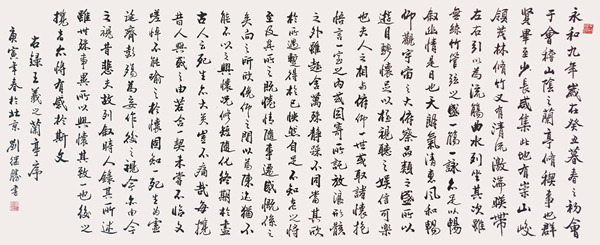 永和九年歲在癸丑暮春之初會
于會稽山陰之蘭亭脩稧事也群
賢畢至少長咸集此地有崇山峻
領茂林脩竹又有清流激湍暎帶
左右引以為流觴曲水列坐其次雖
無絲竹管弦之盛一觴一詠亦足以暢
敘幽情是日也天朗氣清惠風和暢
仰觀宇宙之大俯察品類之盛所以
遊目騁懷足以極視聽之娛信可樂
也夫人之相與俯仰一世或取諸懷抱
悟言一室之內或因寄所託放浪形骸
之外雖趣舍萬殊靜躁不同當其欣
於所遇暫得於己快然自足不知老之將
至及其所之既惓情隨事遷感慨係之
矣向之所欣俛仰之間以為陳迹猶不
能不以之興懷況脩短隨化終期於盡
古人云死生亦大矣豈不痛哉每攬
昔人興感之由若合一契未嘗不臨文
嗟悼不能喻之於懷固知一死生為虛
誕齊彭殤為妄作後之視今亦由今
之視昔悲夫故列敘時人錄其所述
雖世殊事異所以興懷其致一也後之
攬者亦將有感於斯文
右錄王羲之蘭亭序
庚寅年春於北京劉繼勝書